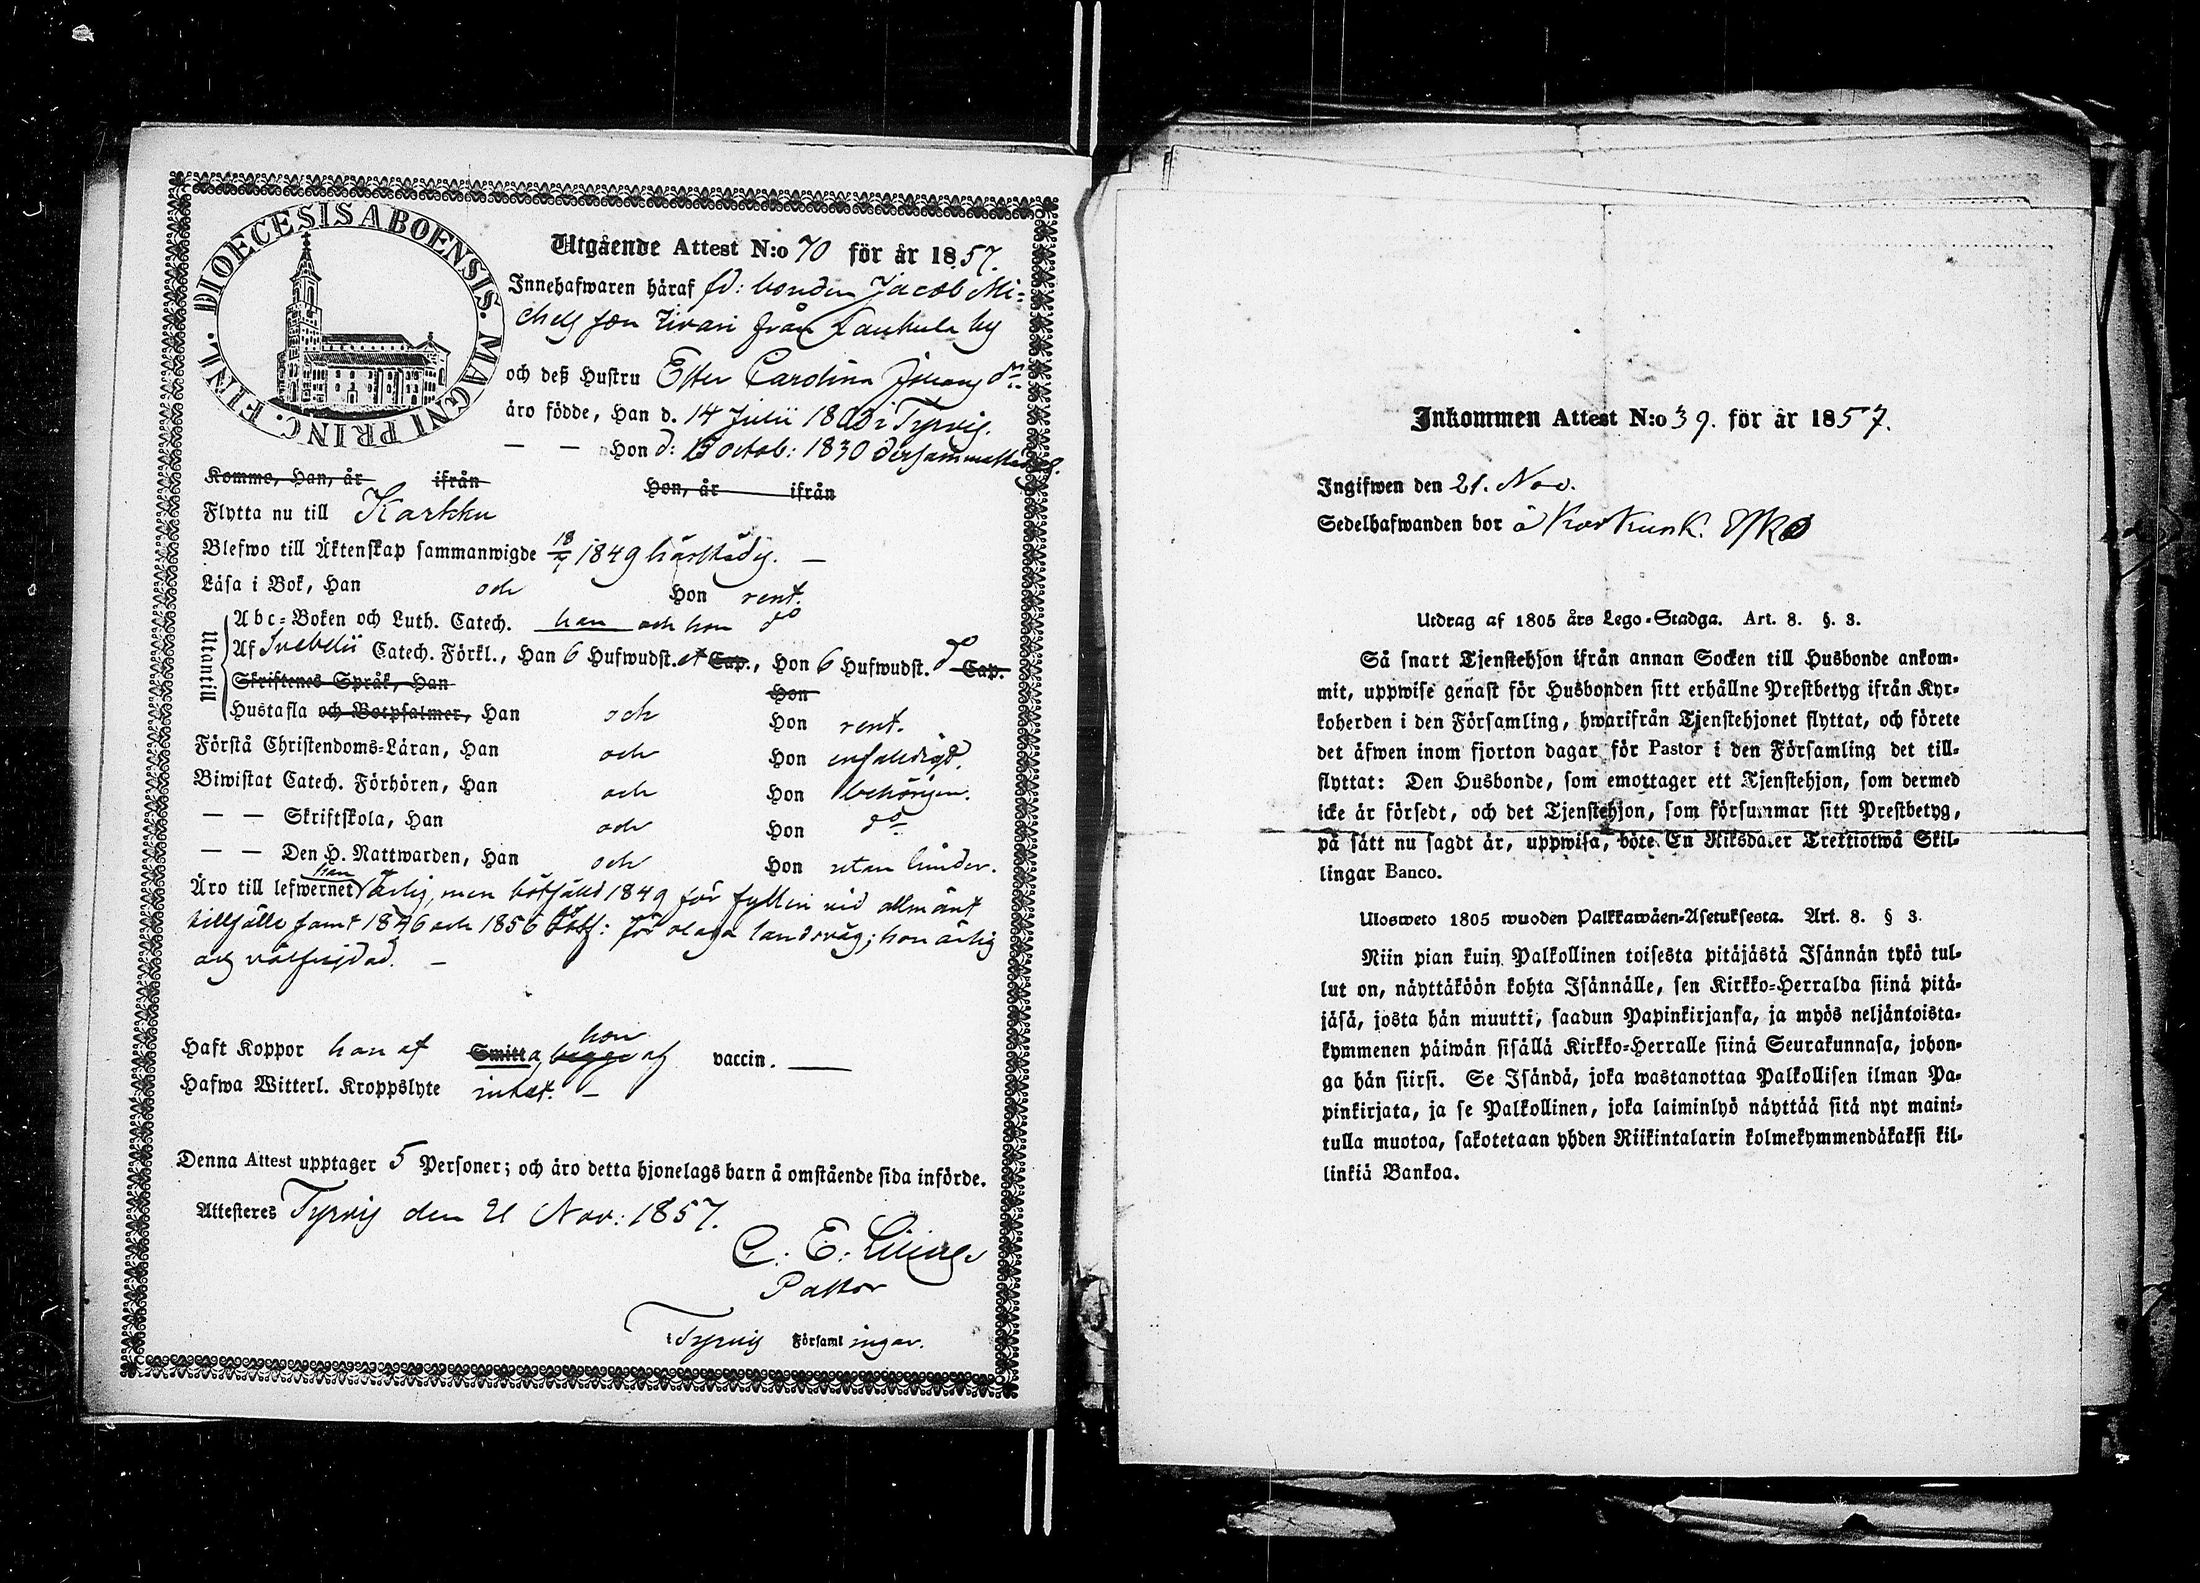 DIOECESIS ABOENSIS. MAGNI PRINC. FINL.
Utgående Attest N:o 70 för år 1857.
Innehafwaren häraf fd: bonden Jacob Mi=
chels son från by
och deß Hustru Ester Carolina Johans dr
äro födde, Han d. 14 Julii 18 i Tyrvis.
— — Hon d: 13 octob: 1830 dersammastädes.
Komme, Han, år ifrån Hon, år ifrån
Flytta nu till Karkku
Blefwo till Äktenskap sammanwigde 18/ 1849 härstädes. —
Läsa i Bok, Han och Hon rent.
Utantill
Abc=Boken och Luth. Catech. han och hon do
Af Svebelii Catech. Förkl., Han 6 Hufwudst. Cap., Hon 6 Hufwudst. Cap.
Skriftenes Språk, Han Hon
Hustafla och Botpsalmer, Han och Hon rent.
Förstå Christendoms=Läran, Han och Hon enfaldigt.
Biwistat Catech. Förhören, Han och Hon behörigen.
— — Skriftskola, Han och Hon do
— — Den H. Nattwarden, Han och Hon utan hinder.
Äro till lefwernet han ärlig, men bötfälld 1849 för fylleri vid allmänt
tillfälle samt 1846 och 1856 för olaga landsväg; hon ärlig
och välfrejdad. —
Haft Koppor han af Smitta, begge hon af vaccin. —
Hafwa Witterl. Kroppslyte intet. —
Denna Attest upptager 5 Personer; och äro detta hjonelags barn å omstående sida införde.
Attesteres Tyrvis den 21 Nov: 1857.
C. E.
Pastor
i Tyrvis Församl ingar.
Inkommen Attest N:o 39. för år 1857.
Ingifwen den 21. Nov.
Sedelhafwanden bor å
Utdrag af 1805 års Lego=Stadga. Art. 8. §. 3.
Så snart Tjenstehjon ifrån annan Socken till Husbonde ankom=
mit, uppwise genast för Husbonden sitt erhållne Prestbetyg ifrån Kyr=
koherden i den Församling, hwarifrån Tjenstehjonet flyttat, och förete
det äfwen inom fjorton dagar för Pastor i den Församling det till=
flyttat: Den Husbonde, som emottager ett Tjenstehjon, som dermed
icke är försedt, och det Tjenstehjon, som försummar sitt Prestbetyg,
på sätt nu sagdt är, uppwisa, böte En Riksdaler Trettiotwå Skil=
lingar Banco.
Ulosweto 1805 wuoden Palkkawäen=Asetuksesta. Art. 8. § 3.
Niin pian kuin Palkollinen toisesta pitäjästä Isännän tykö tul=
lut on, näyttäköön kohta Isännälle, sen Kirkko=Herralda siinä pitä=
jäsä, josta hän muutti, saadun Papinkirjansa, ja myös neljäntoista=
kymmenen päiwän sisällä Kirkko=Herralle siinä Seurakunnasa, johon=
ga hän siirsi. Se Isändä, joka wastanottaa Palkollisen ilman Pa=
pinkirjata, ja se Palkollinen, joka laiminlyö näyttää sitä nyt maini=
tulla muotoa, sakotetaan yhden Riikintalarin kolmekymmendäkaksi kil=
linkiä Bankoa.